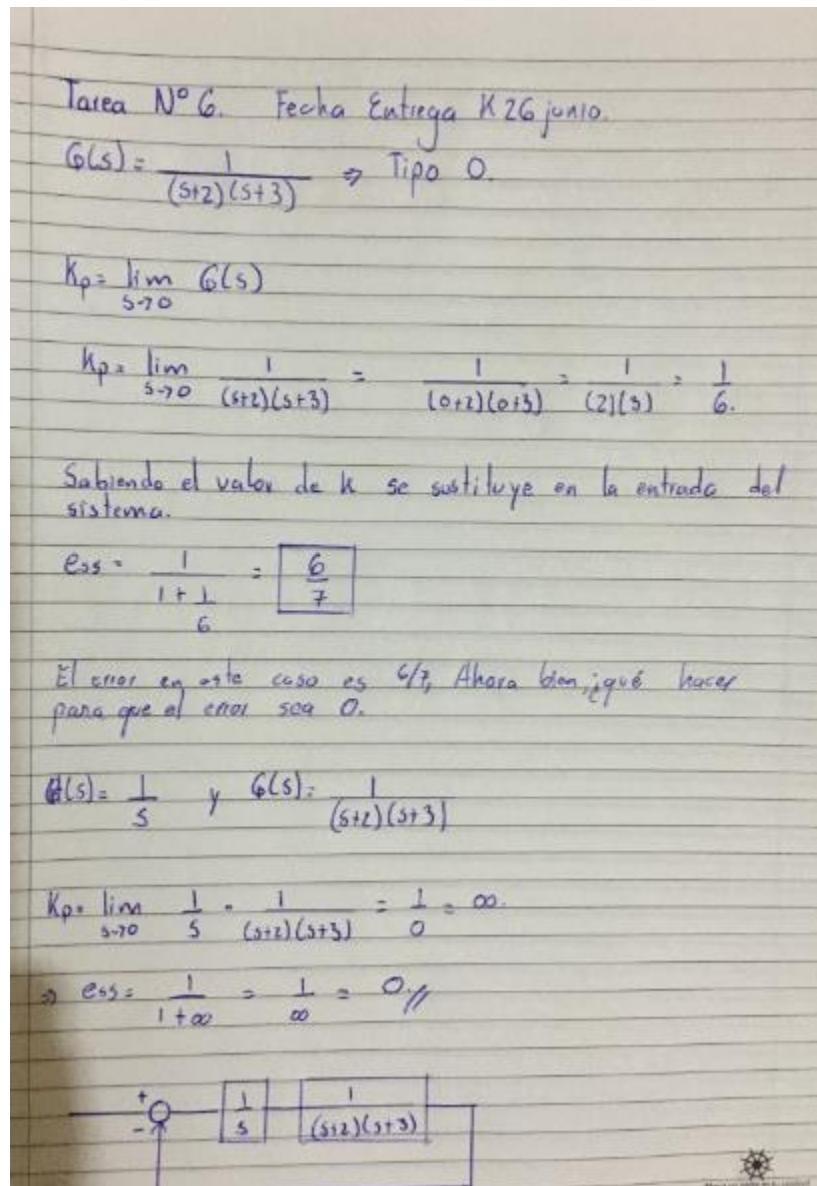 Tarea N° 6. Fecha Entrega K 26 junio.
G(s) = 1/((s+2)(s+3)) ⇒ Tipo 0.
Kp = lim s→0 G(s)
Kp = lim s→0 1/((s+2)(s+3)) = 1/((0+2)(0+3)) = 1/((2)(3)) = 1/6.
Sabiendo el valor de k se sustituye en la entrada del
sistema.
ess = 1/(1 + 1/6) = 6/7
El error en este caso es 6/7, Ahora bien, ¿qué hacer
para que el error sea 0.
G(s) = 1/s y G(s) = 1/((s+2)(s+3))
Kp = lim s→0 1/s · 1/((s+2)(s+3)) = 1/0 = ∞.
⇒ ess = 1/(1+∞) = 1/∞ = 0.//
+ - 1/s 1/((s+2)(s+3))